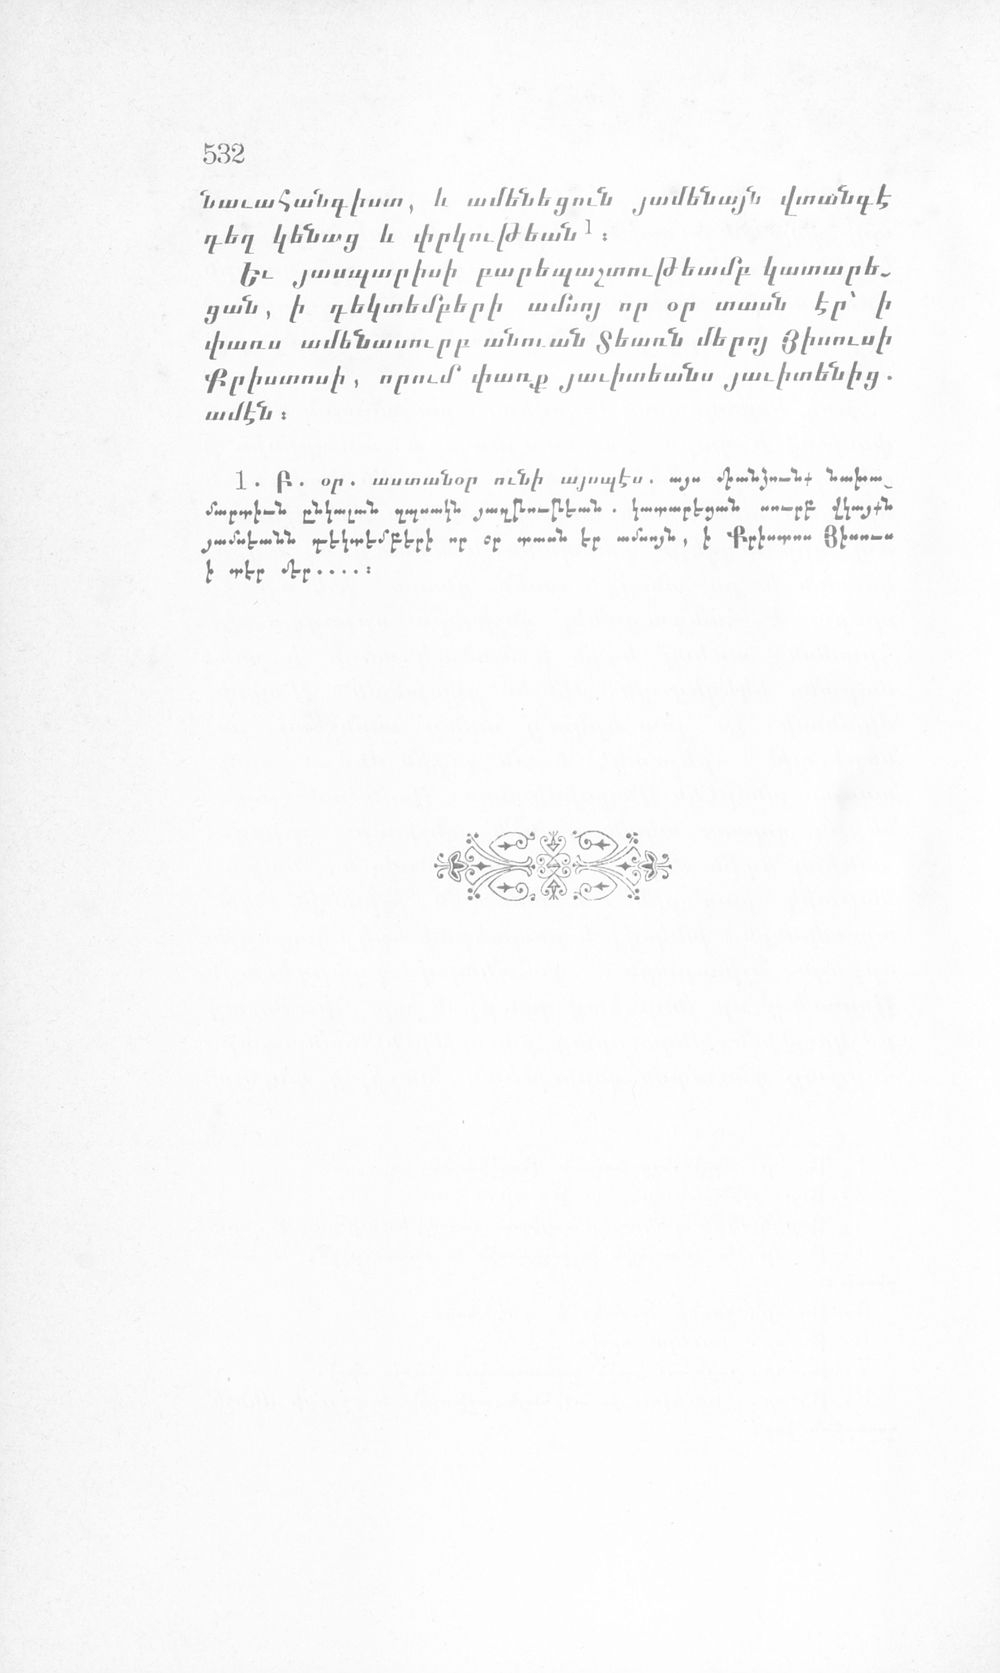 532
նաւահանգիստ, և ամենեցուն յամենայն վտանգէ
դեղ կենաց և փրկութեան¹։
Եւ յասպարիսի բարեպաշտութեամբ կատարե֊
ցան, ի դեկտեմբերի ամսոյ որ օր տասն էր՝ ի
փառս ամենասուրբ անուան Տեառն մերոյ Յիսուսի
Քրիստոսի, որում փառք յաւիտեանս յաւիտենից.
ամէն։
1. Բ. օր. աստանօր ունի այսպէս. այս միանձունք նախա֊
մարտիւն ընկալան զպսակն յաղթութեան. կատարեցան սուրբ վկայքն
յամսեանն դեկտեմբերի որ օր տասն էր ամսոյն, ի Քրիստոս Յիսուս
ի տէր մեր....։